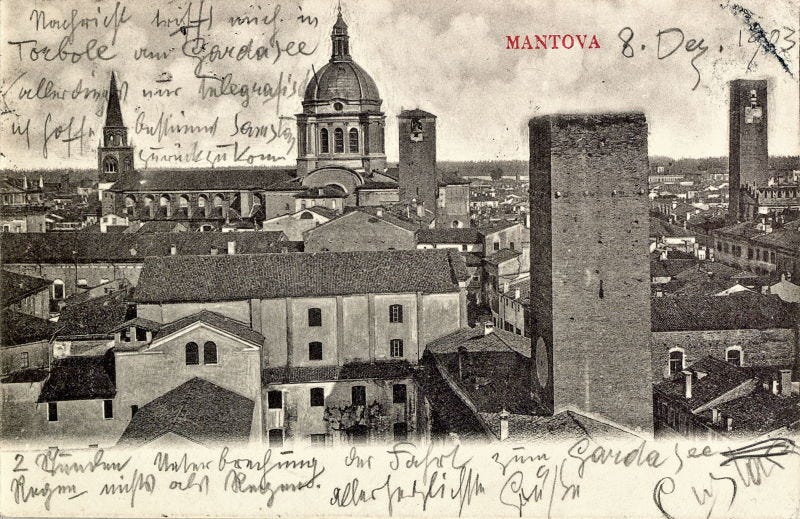 MANTOVA
8. Dez. 1903
Nachricht trifft mich in
Torbole am Gardasee
(allerdings nur telegrafisch
ich hoffe bestimmt Samstag
zurückzukom̅
2 Stunden Unterbrechung der Fahrt zum Gardasee
Regen, nichts als Regen. allerherzlichste Grüße